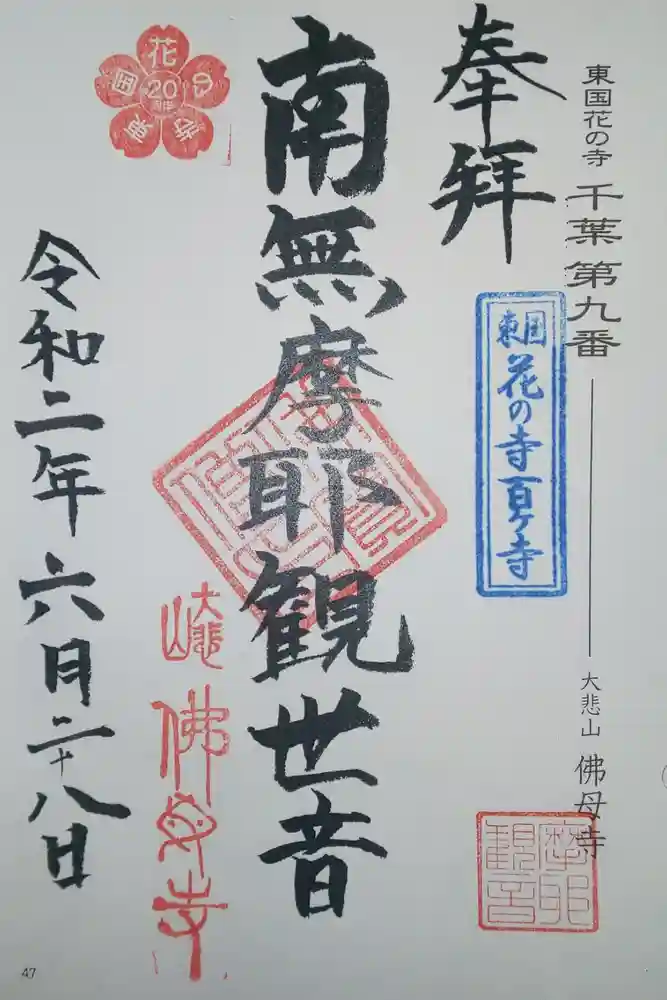 東国花の寺 千葉 第九番
大悲山 佛母寺
奉拝
東国花の寺百ケ寺
摩耶観音
南無摩耶観世音
花の寺東国
20
周年
大悲山
佛母寺
令和二年六月二十八日
47